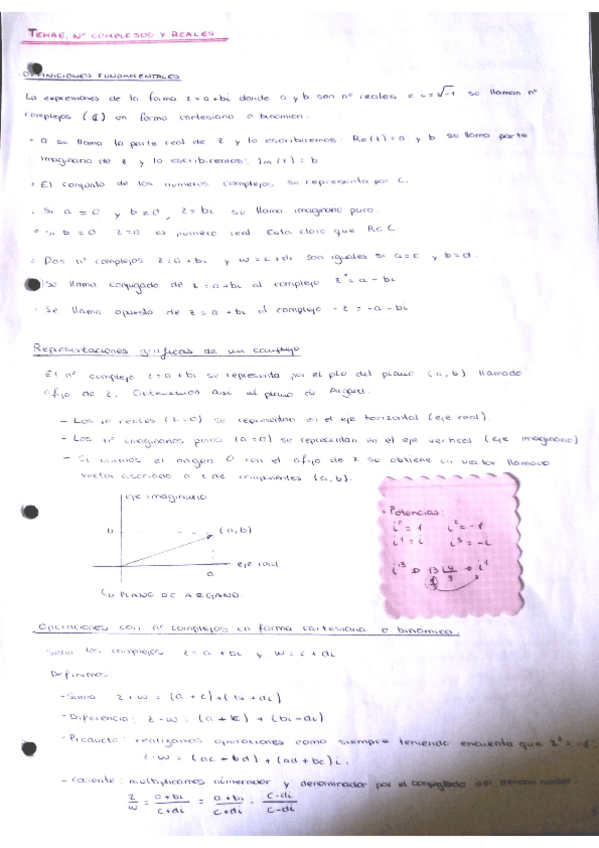 TEMA 6. Nº COMPLEJOS Y REALES
DEFINICIONES FUNDAMENTALES
La expresiones de la forma z = a + bi donde a y b son nº reales e i = √-1 se llaman nº
complejos (ℂ) en forma cartesiana o binómica.
- a se llama la parte real de z y lo escribiremos: Re(z) = a y b se llama parte
imaginaria de z y lo escribiremos: Im(z) = b
- El conjunto de los numeros complejos se representa por C.
- Si a = 0 y b ≠ 0, z = bi se llama imaginario puro.
b = 0 z = a es numero real Esta claro que R ⊂ C
- Dos nº complejos z = a + bi y w = c + di son iguales si a = c y b = d.
Se llama conjugado de z = a + bi al complejo z* = a - bi
- Se llama opuesto de z = a + bi al complejo - z = -a - bi
Representaciones gráficas de un complejo
El nº complejo z = a + bi se representa por el pto del plano (a, b) llamado
afijo de z. Obtenemos así el plano de Argand.
- Los nº reales (b = 0) se representan en el eje horizontal (eje real).
- Los nº imaginarios puros (a = 0) se representan en el eje vertical (eje imaginario)
- Si unimos el origen O con el afijo de z se obtiene un vector llamado
vector asociado a z de componentes (a, b).
eje imaginario
b
(a, b)
eje real
a
PLANO DE ARGAND.
- Potencias:
i⁰ = 1 i² = -1
i¹ = i i³ = -i
i¹³ ⇒ 13 4 ⇒ i¹
1 3
Operaciones con nº complejos en forma cartesiana o binómica.
Sean los complejos z = a + bi y w = c + di
Definimos
- Suma z + w = (a + c) + (bi + di)
- Diferencia: z - w = (a - c) + (bi - di)
- Producto: realizamos operaciones como siempre teniendo encuenta que i² = -1:
z · w = (ac - bd) + (ad + bc) i.
- Cociente: multiplicamos numerador y denominador por el conjugado del denominador:
z/w = a + bi / c + di = a + bi / c + di · c - di / c - di